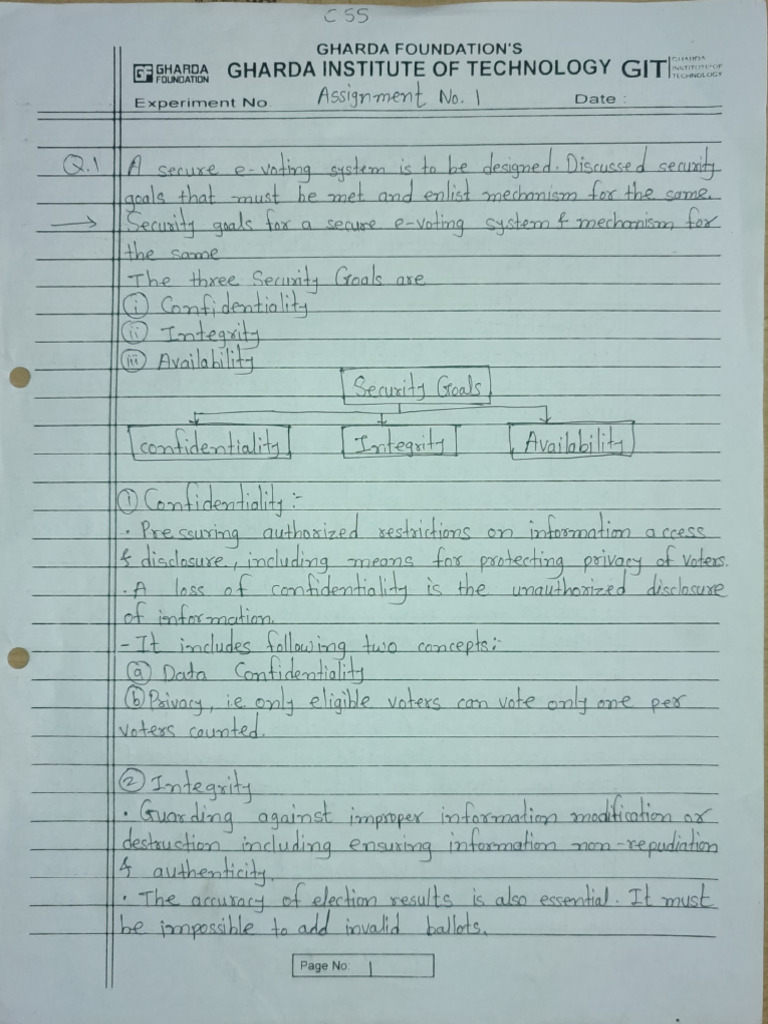 CSS
GHARDA FOUNDATION'S
GF GHARDA FOUNDATION GHARDA INSTITUTE OF TECHNOLOGY GIT GHARDA INSTITUTE OF TECHNOLOGY
Experiment No Assignment No. 1 Date :
Q.1 A secure e-voting system is to be designed. Discussed security
goals that must be met and enlist mechanism for the same.
→ Security goals for a secure e-voting system & mechanism for
the same
The three Security Goals are
(i) Confidentiality
(ii) Integrity
(iii) Availability
Security Goals
confidentiality Integrity Availability
① Confidentiality :-
· Pressuring authorized restrictions on information access
& disclosure, including means for protecting privacy of voters.
· A loss of confidentiality is the unauthorized disclosure
of information.
- It includes following two concepts:-
(a) Data Confidentiality
(b) Privacy, i.e. only eligible voters can vote only one per
voters counted.
② Integrity
· Guarding against improper information modification or
destruction including ensuring information non-repudiation
& authenticity.
· The accuracy of election results is also essential. It must
be impossible to add invalid ballots.
Page No: 1